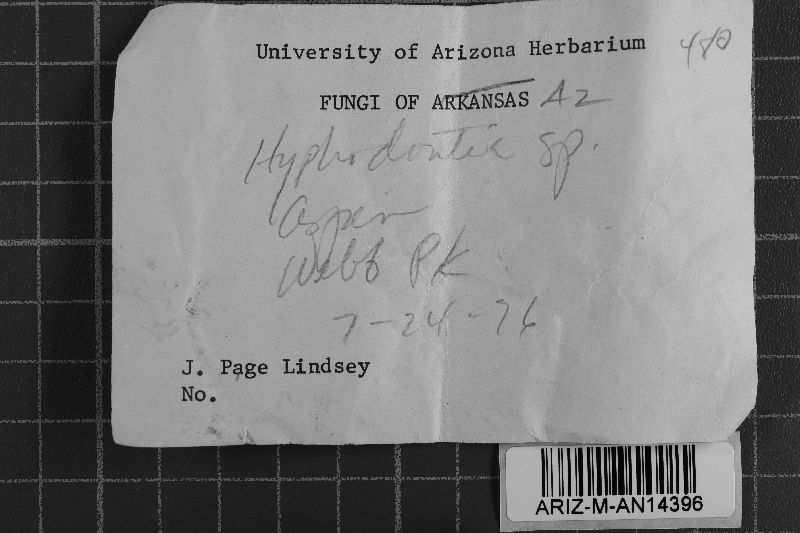 University of Arizona Herbarium 480
FUNGI OF ARKANSAS AZ
Hyphodontia sp.
Aspen
Webb PK
7-24-76
J. Page Lindsey
No.
ARIZ-M-AN14396